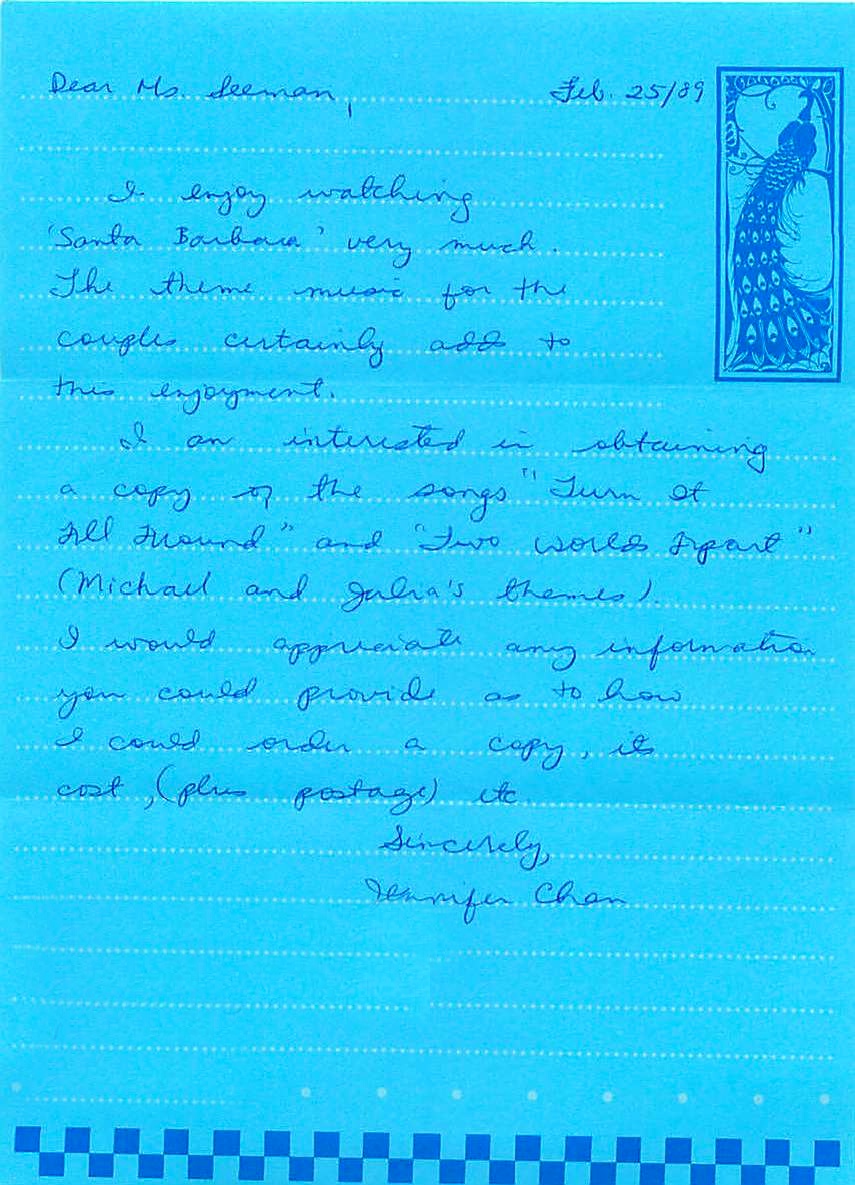 Dear Ms. Seeman, Feb. 25/89
I enjoy watching
'Santa Barbara' very much.
The theme music for the
couples certainly adds to
this enjoyment.
I am interested in obtaining
a copy of the songs "Turn It
All Around" and "Two Worlds Apart"
(Michael and Julia's themes).
I would appreciate any information
you could provide as to how
I could order a copy, its
cost, (plus postage) etc.
Sincerely,
Jennifer Chan